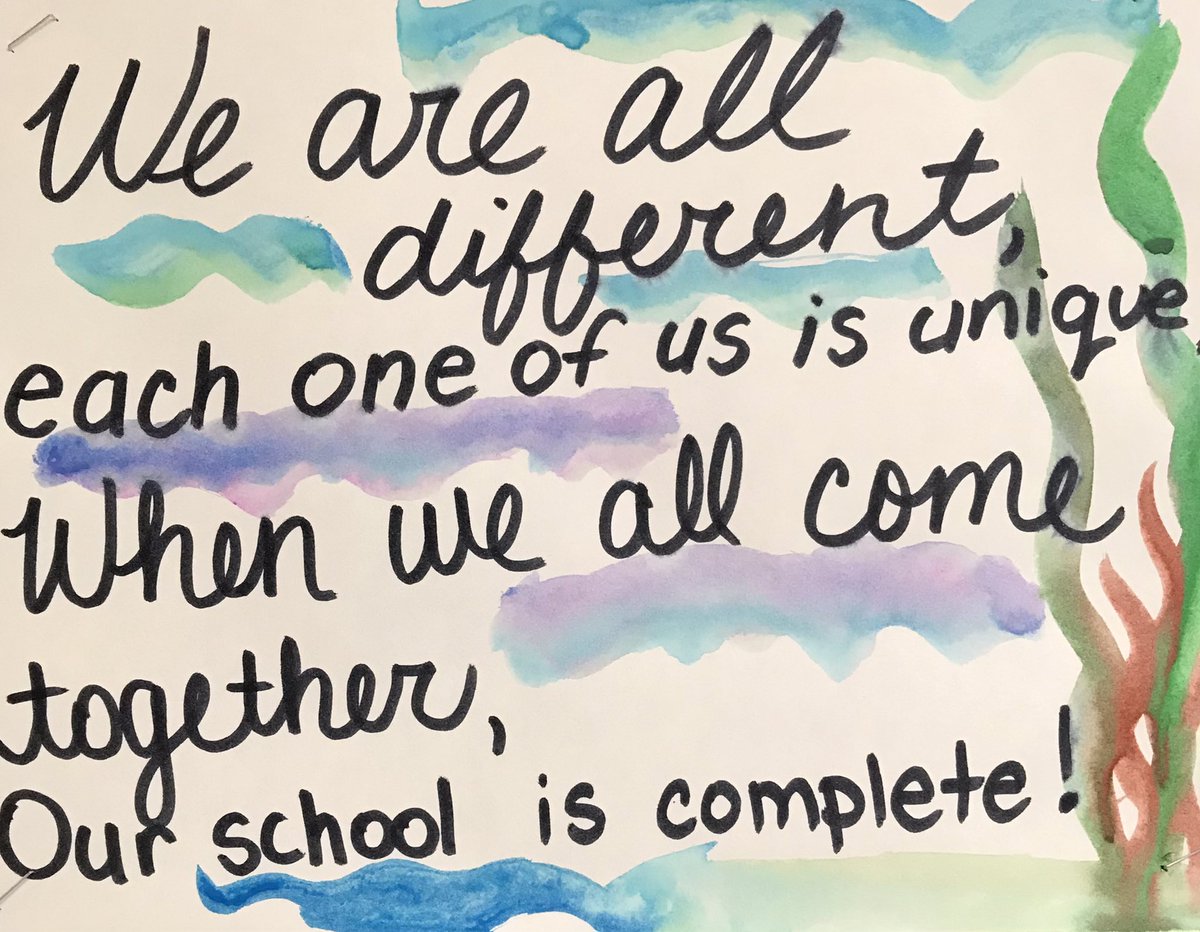 We are all
different,
each one of us is unique
When we all come
together,
Our school is complete!